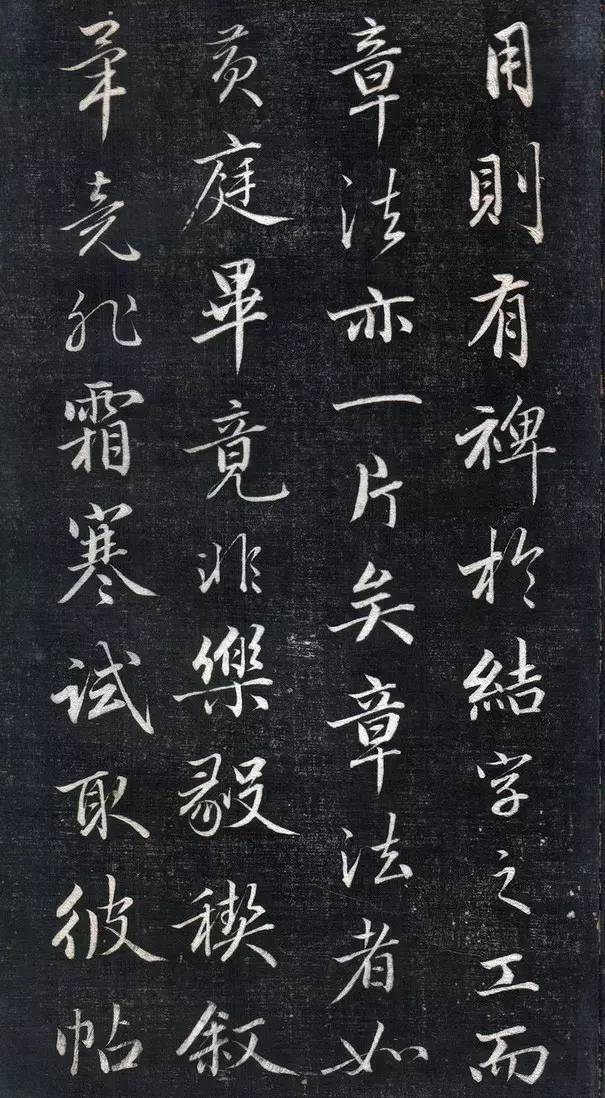 用則有裨於結字之工而
章法亦一片矣章法者如
黃庭畢竟非樂毅稧叙
筆竟非霜寒試取彼帖